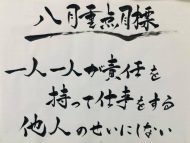 八月重点目標
一人一人が責任を
持って仕事をする
他人のせいにしない